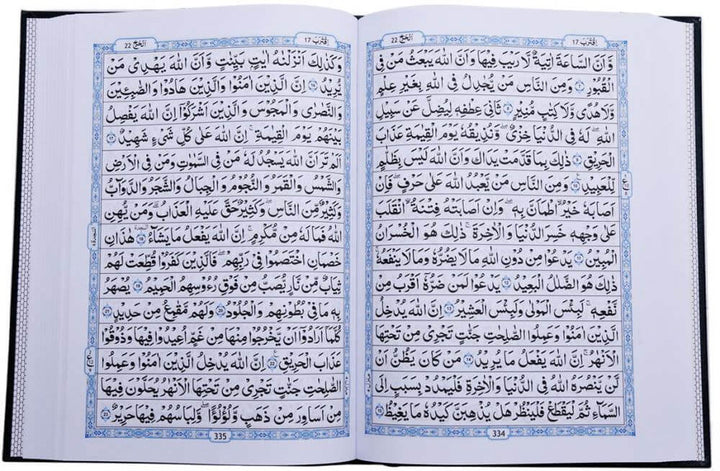 اِقْتَرَبَ 17
اَلْحَجّ 22
وَّاَنَّ السَّاعَةَ اٰتِيَةٌ لَّا رَيْبَ فِيْهَا وَاَنَّ اللّٰهَ يَبْعَثُ مَنْ فِى
الْقُبُوْرِ ۷ وَمِنَ النَّاسِ مَنْ يُّجَادِلُ فِى اللّٰهِ بِغَيْرِ عِلْمٍ
وَّلَا هُدًى وَّلَا كِتٰبٍ مُّنِيْرٍ ۸ ثَانِىَ عِطْفِهٖ لِيُضِلَّ عَنْ سَبِيْلِ
اللّٰهِ ؕ لَهٗ فِى الدُّنْيَا خِزْىٌ وَّنُذِيْقُهٗ يَوْمَ الْقِيٰمَةِ عَذَابَ
الْحَرِيْقِ ۹ ذٰلِكَ بِمَا قَدَّمَتْ يَدٰكَ وَاَنَّ اللّٰهَ لَيْسَ بِظَلَّامٍ
لِّلْعَبِيْدِ ۱۰ وَمِنَ النَّاسِ مَنْ يَّعْبُدُ اللّٰهَ عَلٰى حَرْفٍ ۚ فَاِنْ
اَصَابَهٗ خَيْرُ ِۨاطْمَاَنَّ بِهٖ ۚ وَاِنْ اَصَابَتْهُ فِتْنَةُ ِۨانْقَلَبَ
عَلٰى وَجْهِهٖ ۚ خَسِرَ الدُّنْيَا وَالْاٰخِرَةَ ؕ ذٰلِكَ هُوَ الْخُسْرَانُ
الْمُبِيْنُ ۱۱ يَدْعُوْا مِنْ دُوْنِ اللّٰهِ مَا لَا يَضُرُّهٗ وَمَا لَا يَنْفَعُهٗ ؕ
ذٰلِكَ هُوَ الضَّلٰلُ الْبَعِيْدُ ۱۲ يَدْعُوْا لَمَنْ ضَرُّهٗۤ اَقْرَبُ مِنْ
نَّفْعِهٖ ؕ لَبِئْسَ الْمَوْلٰى وَلَبِئْسَ الْعَشِيْرُ ۱۳ اِنَّ اللّٰهَ يُدْخِلُ
الَّذِيْنَ اٰمَنُوْا وَعَمِلُوا الصّٰلِحٰتِ جَنّٰتٍ تَجْرِىْ مِنْ تَحْتِهَا
الْاَنْهٰرُ ؕ اِنَّ اللّٰهَ يَفْعَلُ مَا يُرِيْدُ ۱۴ مَنْ كَانَ يَظُنُّ اَنْ
لَّنْ يَّنْصُرَهُ اللّٰهُ فِى الدُّنْيَا وَالْاٰخِرَةِ فَلْيَمْدُدْ بِسَبَبٍ اِلَى
السَّمَآءِ ثُمَّ لْيَقْطَعْ فَلْيَنْظُرْ هَلْ يُذْهِبَنَّ كَيْدُهٗ مَا يَغِيْظُ ۱۵
334
اِقْتَرَبَ 17
اَلْحَجّ 22
وَكَذٰلِكَ اَنْزَلْنٰهُ اٰيٰتٍۢ بَيِّنٰتٍ ۙ وَّاَنَّ اللّٰهَ يَهْدِىْ مَنْ
يُّرِيْدُ ۱۶ اِنَّ الَّذِيْنَ اٰمَنُوْا وَالَّذِيْنَ هَادُوْا وَالصّٰبِـِٕيْنَ
وَالنَّصٰرٰى وَالْمَجُوْسَ وَالَّذِيْنَ اَشْرَكُوْۤا ۖ اِنَّ اللّٰهَ يَفْصِلُ
بَيْنَهُمْ يَوْمَ الْقِيٰمَةِ ؕ اِنَّ اللّٰهَ عَلٰى كُلِّ شَىْءٍ شَهِيْدٌ ۱۷
اَلَمْ تَرَ اَنَّ اللّٰهَ يَسْجُدُ لَهٗ مَنْ فِى السَّمٰوٰتِ وَمَنْ فِى الْاَرْضِ
وَالشَّمْسُ وَالْقَمَرُ وَالنُّجُوْمُ وَالْجِبَالُ وَالشَّجَرُ وَالدَّوَآبُّ
وَكَثِيْرٌ مِّنَ النَّاسِ ؕ وَكَثِيْرٌ حَقَّ عَلَيْهِ الْعَذَابُ ؕ وَمَنْ يُّهِنِ
اللّٰهُ فَمَا لَهٗ مِنْ مُّكْرِمٍ ؕ اِنَّ اللّٰهَ يَفْعَلُ مَا يَشَآءُ ۱۸ هٰذٰنِ
خَصْمٰنِ اخْتَصَمُوْا فِىْ رَبِّهِمْ ۫ فَالَّذِيْنَ كَفَرُوْا قُطِّعَتْ لَهُمْ
ثِيَابٌ مِّنْ نَّارٍ ؕ يُصَبُّ مِنْ فَوْقِ رُءُوْسِهِمُ الْحَمِيْمُ ۱۹ يُصْهَرُ
بِهٖ مَا فِىْ بُطُوْنِهِمْ وَالْجُلُوْدُ ۲۰ وَلَهُمْ مَّقَامِعُ مِنْ حَدِيْدٍ ۲۱
كُلَّمَاۤ اَرَادُوْۤا اَنْ يَّخْرُجُوْا مِنْهَا مِنْ غَمٍّ اُعِيْدُوْا فِيْهَا وَذُوْقُوْا
عَذَابَ الْحَرِيْقِ ۲۲ اِنَّ اللّٰهَ يُدْخِلُ الَّذِيْنَ اٰمَنُوْا وَعَمِلُوا
الصّٰلِحٰتِ جَنّٰتٍ تَجْرِىْ مِنْ تَحْتِهَا الْاَنْهٰرُ يُحَلَّوْنَ فِيْهَا
مِنْ اَسَاوِرَ مِنْ ذَهَبٍ وَّلُؤْلُؤًا ؕ وَلِبَاسُهُمْ فِيْهَا حَرِيْرٌ ۲۳
335